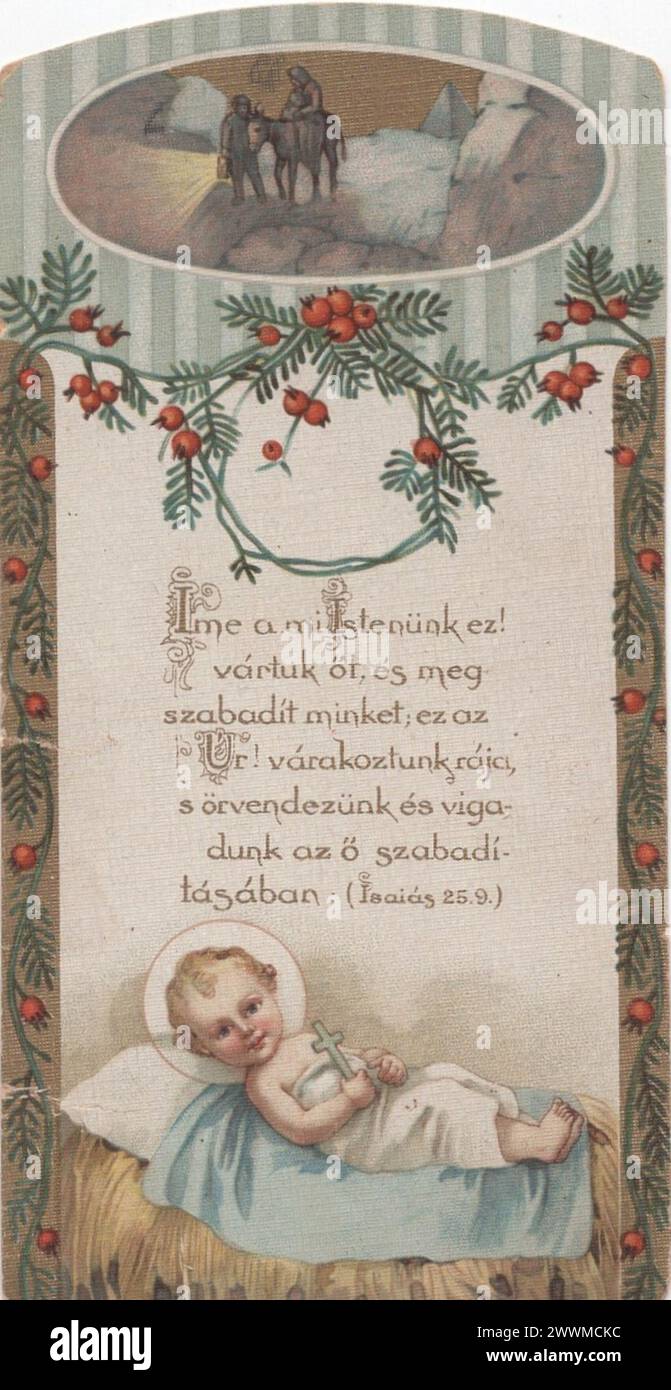 Ime a mi Istenünk ez!
vártuk őt, és meg-
szabadít minket; ez az
Úr! várakoztunk rája,
s örvendezünk és viga-
dunk az ő szabadí-
tásában. (Isaiás 25.9.)
alamy
Image ID: 2WWMCKC
www.alamy.com